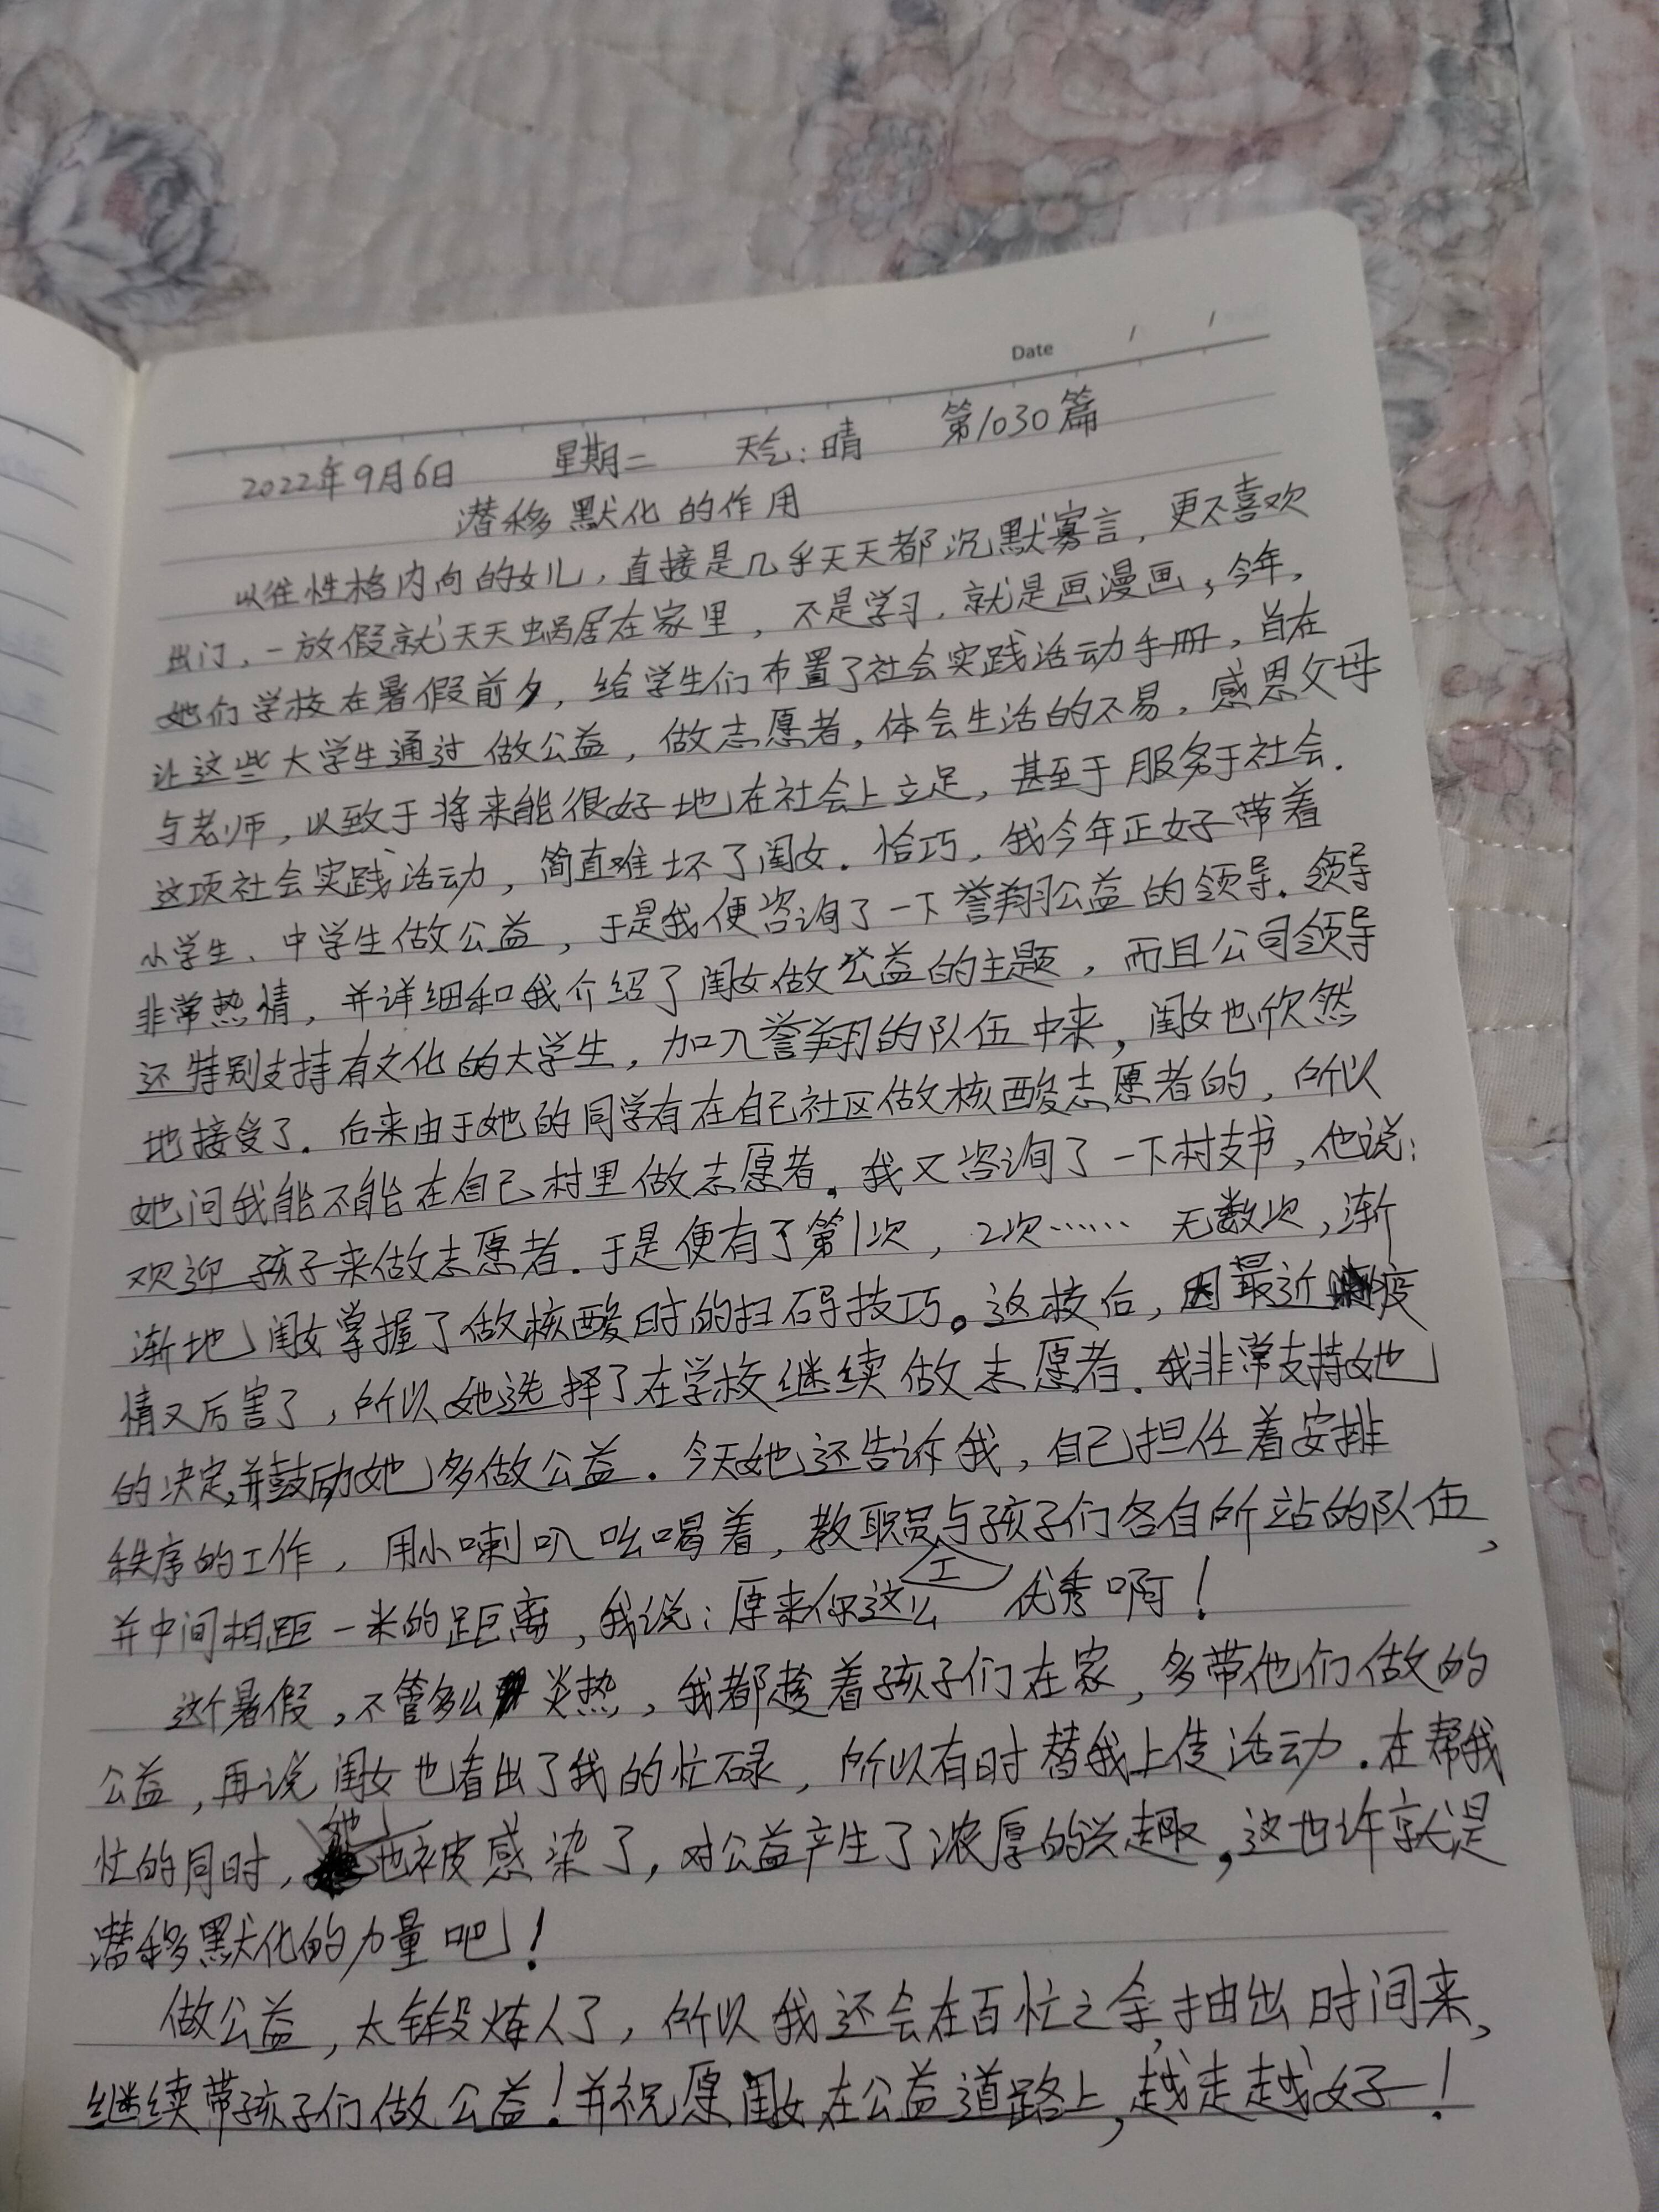 Date / /
2022年9月6日 星期二 天气:晴 第1030篇
潜移默化的作用
以往性格内向的女儿,直接是几乎天天都沉默寡言,更不喜欢
出门,一放假就天天蜗居在家里,不是学习,就是画漫画,今年,
她们学校在暑假前夕,给学生们布置了社会实践活动手册,旨在
让这些大学生通过做公益,做志愿者,体会生活的不易,感恩父母
与老师,以致于将来能很好地在社会上立足,甚至于服务于社会.
这项社会实践活动,简直难坏了闺女.恰巧,我今年正好带着
小学生、中学生做公益,于是我便咨询了一下誉翔公益的领导.领导
非常热情,并详细和我介绍了闺女做公益的主题,而且公司领导
还特别支持有文化的大学生,加入誉翔的队伍中来,闺女也欣然
地接受了.后来由于她的同学有在自己社区做核酸志愿者的,所以
她问我能不能在自己村里做志愿者.我又咨询了一下村支书,他说:
欢迎孩子来做志愿者.于是便有了第1次,2次……无数次,渐
渐地闺女掌握了做核酸时的扫码技巧。返校后,因最近疫
情又厉害了,所以她选择了在学校继续做志愿者.我非常支持她
的决定,并鼓励她多做公益.今天她还告诉我,自己担任着安排
秩序的工作,用小喇叭吆喝着,教职员工与孩子们各自所站的队伍,
并中间相距一米的距离,我说:原来你这么优秀啊!
这个暑假,不管多么炎热,我都趁着孩子们在家,多带他们做的
公益,再说闺女也看出了我的忙碌,所以有时替我上传活动.在帮我
忙的同时,她也被感染了,对公益产生了浓厚的兴趣,这也许就是
潜移默化的力量吧!
做公益,太锻炼人了,所以我还会在百忙之余,抽出时间来,
继续带孩子们做公益!并祝愿闺女在公益道路上,越走越好!